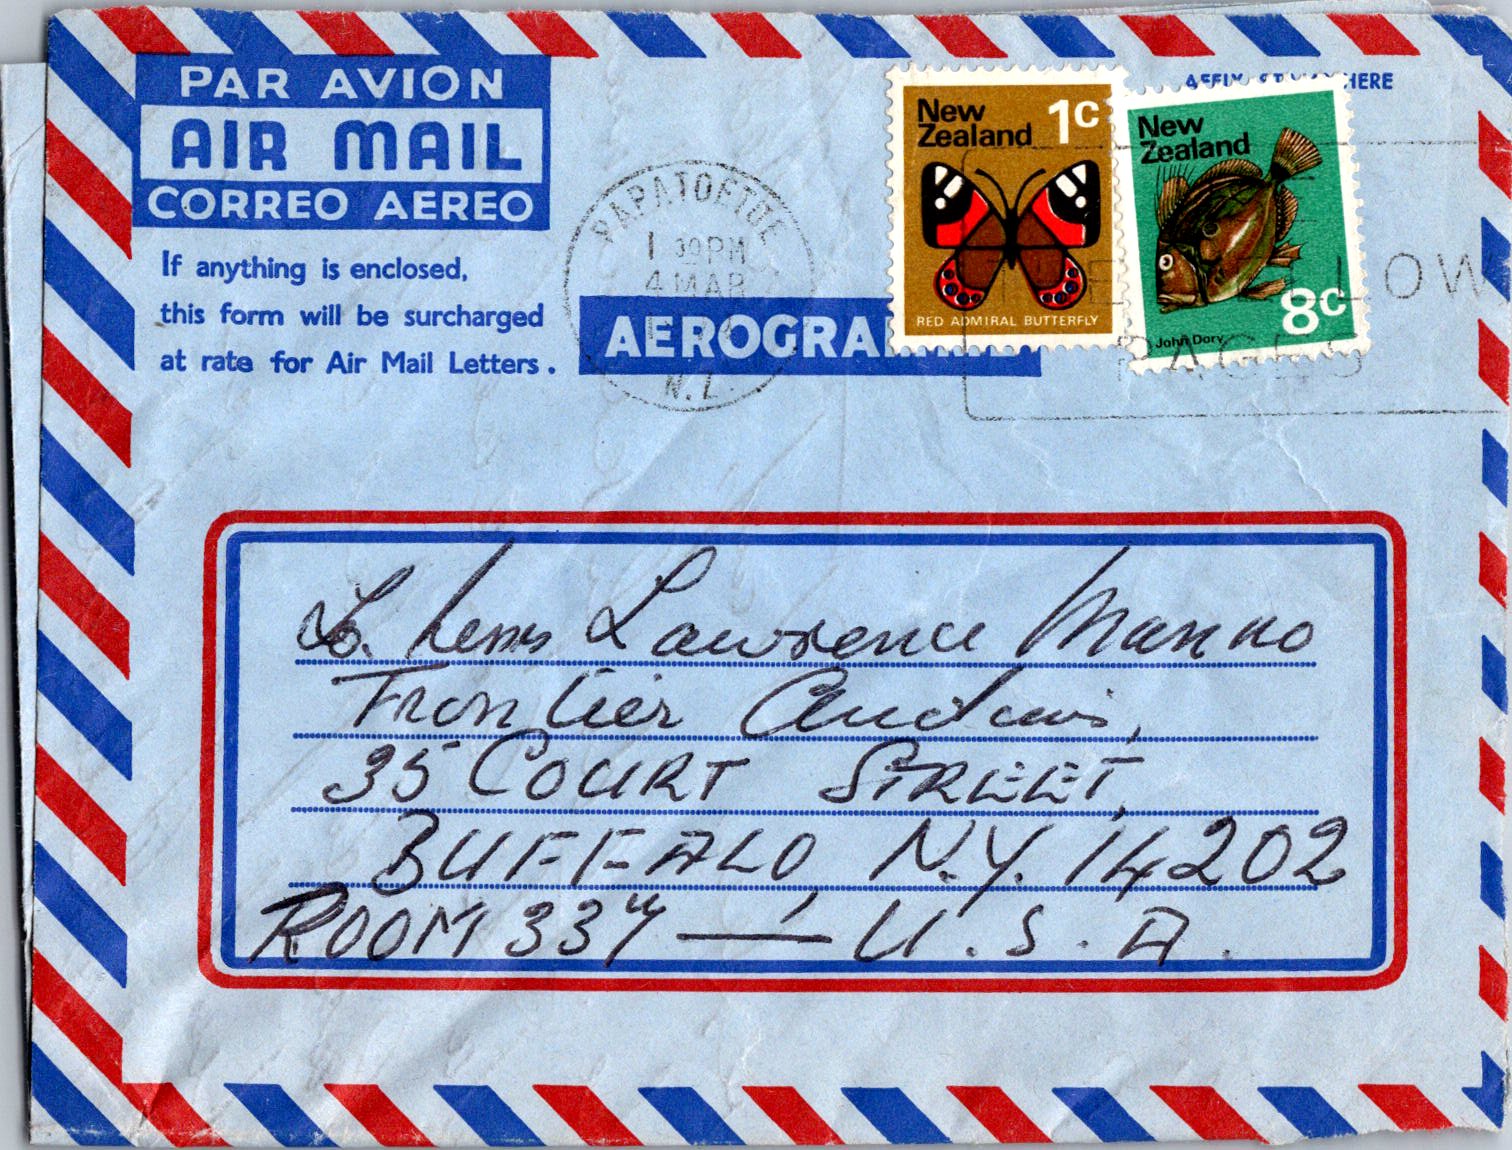 PAR AVION
AIR MAIL
CORREO AEREO
If anything is enclosed,
this form will be surcharged
at rate for Air Mail Letters.
AEROGRA
HERE
New
Zealand
1c
RED ADMIRAL BUTTERFLY
New
Zealand
8c
John Dory
PAPATOETOE
1 30PM
4 MAR
N.Z.
LOW
PAGES
Lawrence Manno
Frontier
35 COURT STREET,
BUFFALO, N.Y. 14202
ROOM 334 — U.S.A.